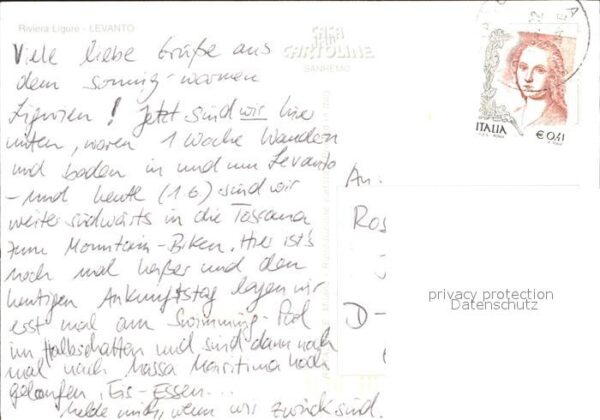 Riviera Ligure - LEVANTO
Viele liebe Grüße aus
dem sonnig-warmen
Ligurien! Jetzt sind wir hier
unten, waren 1 Woche Wandern
und baden in und um Levanto
- und heute (16) sind wir
weiter südwärts in die Toscana
zum Mountain-Biken. Hier ist's
noch mal heißer und den
heutigen Ankunftstag legen wir
erst mal am Swimming-Pool
im Halbschatten und sind dann noch
mal nach Massa Marittima hoch
gelaufen, Eis-Essen...
Melde mich, wenn wir zurück sind.
CASA
CARTOLINE
SANREMO
ITALIA
€ 0,41
An:
Ros
D-
privacy protection
Datenschutz